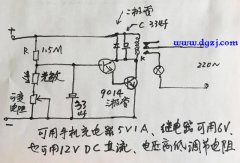 二极管
C 334
www.dgzj.com
R
1.5M
光敏
9014
三极管
可变
电阻
33
K
220V
可用手机充电器5V1A、继电器可用6V.
也可用12V DC直流、电距高低调节电阻